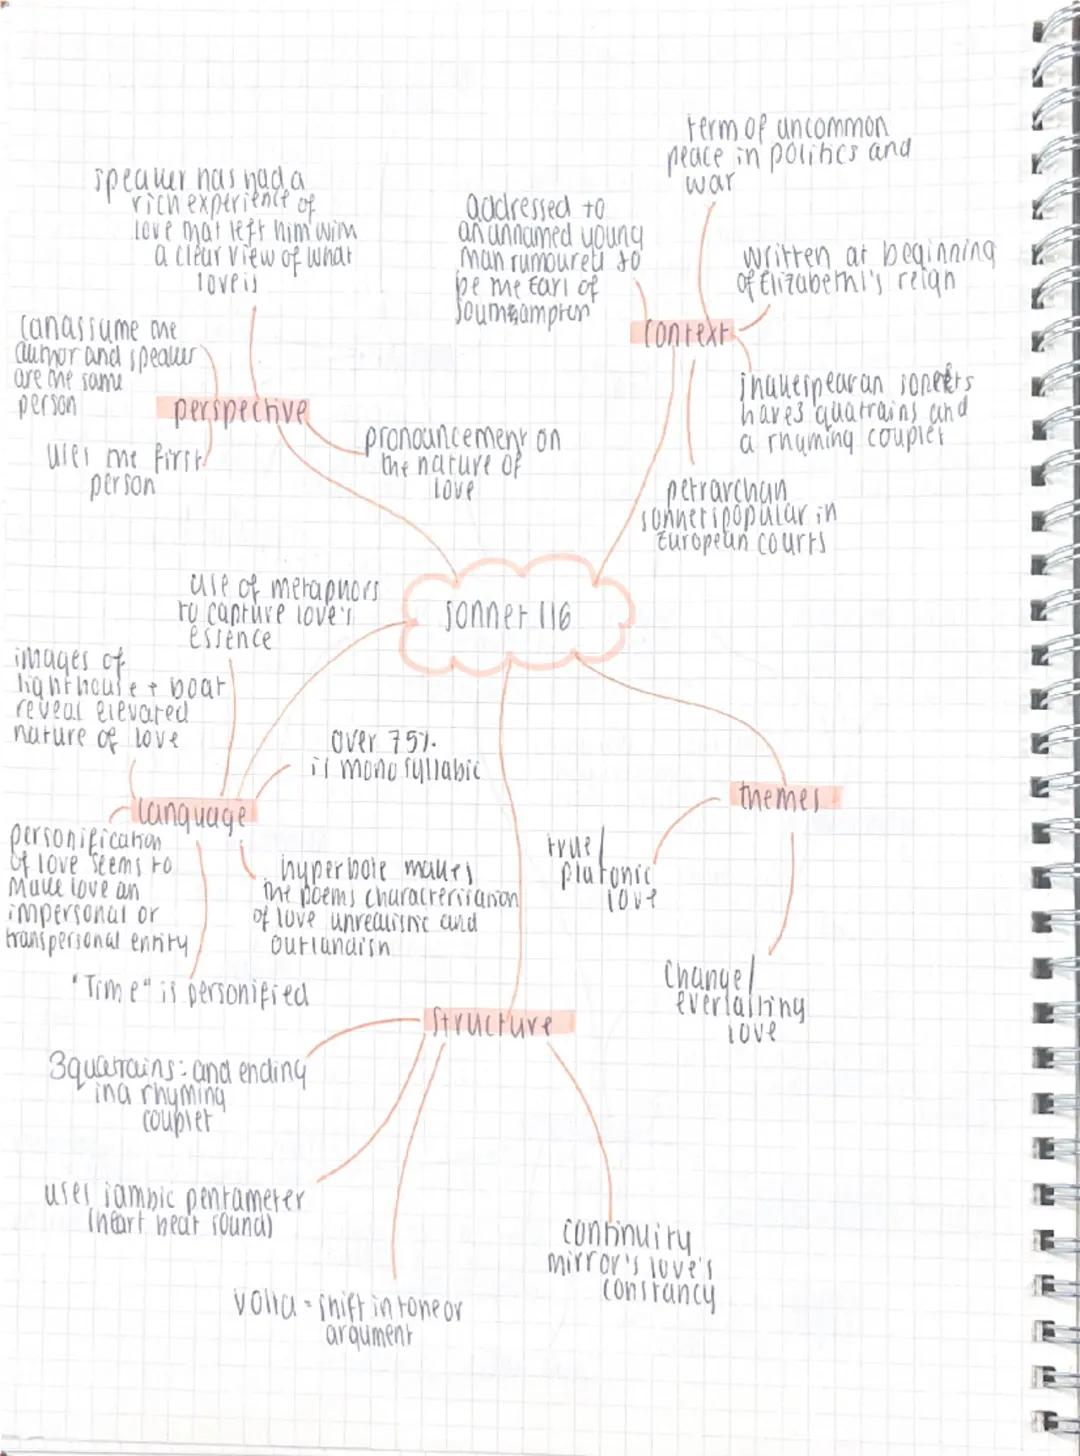 sonnet 116
perspective
speaker has had a
rich experience of
love that left him with
a clear view of what
love is
can assume the
author and speaker
are the same
person
uses the first
person
pronouncement on
the nature of
love
context
addressed to
an unnamed young
man rumoured to
be the Earl of
Southampton
term of uncommon
peace in politics and
war
written at beginning
of Elizabeth I's reign
shakespearan sonnets
have 3 quatrains and
a rhyming couplet
petrarchan
sonnets popular in
European courts
language
use of metaphors
to capture love's
essence
images of
lighthouse + boat
reveal elevated
nature of love
over 75%
is monosyllabic
personification
of love seems to
make love an
impersonal or
transpersonal entity
hyperbole makes
the poems characterisation
of love unrealistic and
outlandish
"Time" is personified
themes
true/
platonic
love
change/
everlasting
love
structure
3 quatrains: and ending
in a rhyming
couplet
uses iambic pentameter
(heart beat sound)
volta = shift in tone or
argument
continuity
mirror's love's
constancy